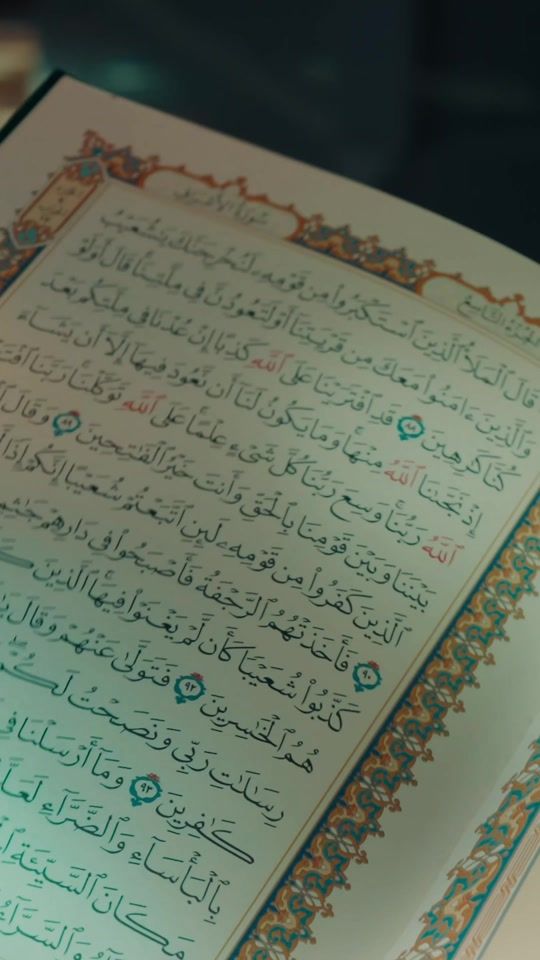 الجزء التاسع
سورة الأعراف
قَالَ ٱلْمَلَأُ ٱلَّذِينَ ٱسْتَكْبَرُوا۟ مِن قَوْمِهِۦ لَنُخْرِجَنَّكَ يَـٰشُعَيْبُ
وَٱلَّذِينَ ءَامَنُوا۟ مَعَكَ مِن قَرْيَتِنَآ أَوْ لَتَعُودُنَّ فِى مِلَّتِنَا قَالَ أَوَلَوْ
كُنَّا كَـٰرِهِينَ ٨٨ قَدِ ٱفْتَرَيْنَا عَلَى ٱللَّهِ كَذِبًا إِنْ عُدْنَا فِى مِلَّتِكُم بَعْدَ
إِذْ نَجَّىٰنَا ٱللَّهُ مِنْهَا وَمَا يَكُونُ لَنَآ أَن نَّعُودَ فِيهَآ إِلَّآ أَن يَشَآءَ
ٱللَّهُ رَبُّنَا وَسِعَ رَبُّنَا كُلَّ شَىْءٍ عِلْمًا عَلَى ٱللَّهِ تَوَكَّلْنَا رَبَّنَا
بَيْنَنَا وَبَيْنَ قَوْمِنَا بِٱلْحَقِّ وَأَنتَ خَيْرُ ٱلْفَـٰتِحِينَ ٨٩ وَقَالَ
ٱلَّذِينَ كَفَرُوا۟ مِن قَوْمِهِۦ لَئِنِ ٱتَّبَعْتُمْ شُعَيْبًا إِنَّكُمْ إِذًا
٩٠ فَأَخَذَتْهُمُ ٱلرَّجْفَةُ فَأَصْبَحُوا۟ فِى دَارِهِمْ
كَذَّبُوا۟ شُعَيْبًا كَأَن لَّمْ يَغْنَوْا۟ فِيهَا ٱلَّذِينَ
هُمُ ٱلْخَـٰسِرِينَ ٩٢ فَتَوَلَّىٰ عَنْهُمْ وَقَالَ
رِسَـٰلَـٰتِ رَبِّى وَنَصَحْتُ لَكُمْ
كَـٰفِرِينَ ٩٣ وَمَآ أَرْسَلْنَا فِى
بِٱلْبَأْسَآءِ وَٱلضَّرَّآءِ
مَكَانَ ٱلسَّيِّئَةِ
وَٱلسَّرَّآءُ